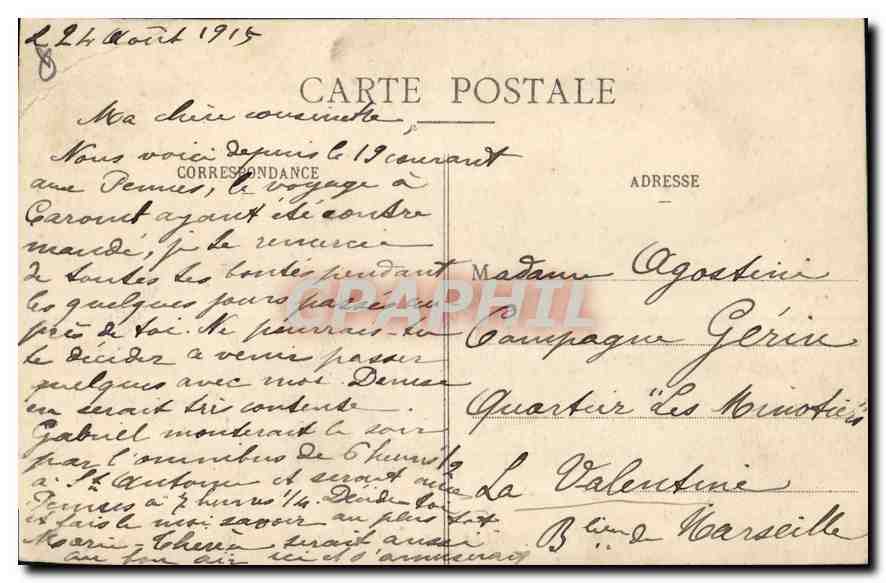 24 Août 1915
CARTE POSTALE
Ma chère cousinette,
Nous voici depuis le 19 courant
CORRESPONDANCE
aux Pennes, le voyage à
ayant été contre
mandé, je te remercie
de toutes tes bontés pendant
les quelques jours passés au
près de toi. Ne pourrais-tu
te décider à venir passer
quelques avec moi Denise
en serait très contente.
Gabriel monterait le soir
par l'omnibus de 6 heures 1/2
à St Antoine et serait aux
Pennes à 7 heures 1/4. Décide toi
et fais le moi savoir au plus tôt
Marie-Thérèse serait aussi
au bon air ici et s'amuserait
ADRESSE
Madame Agostini
Campagne Gérin
Quartier "Les Minotiers"
La Valentine
Blieue de Marseille
CARPHIL